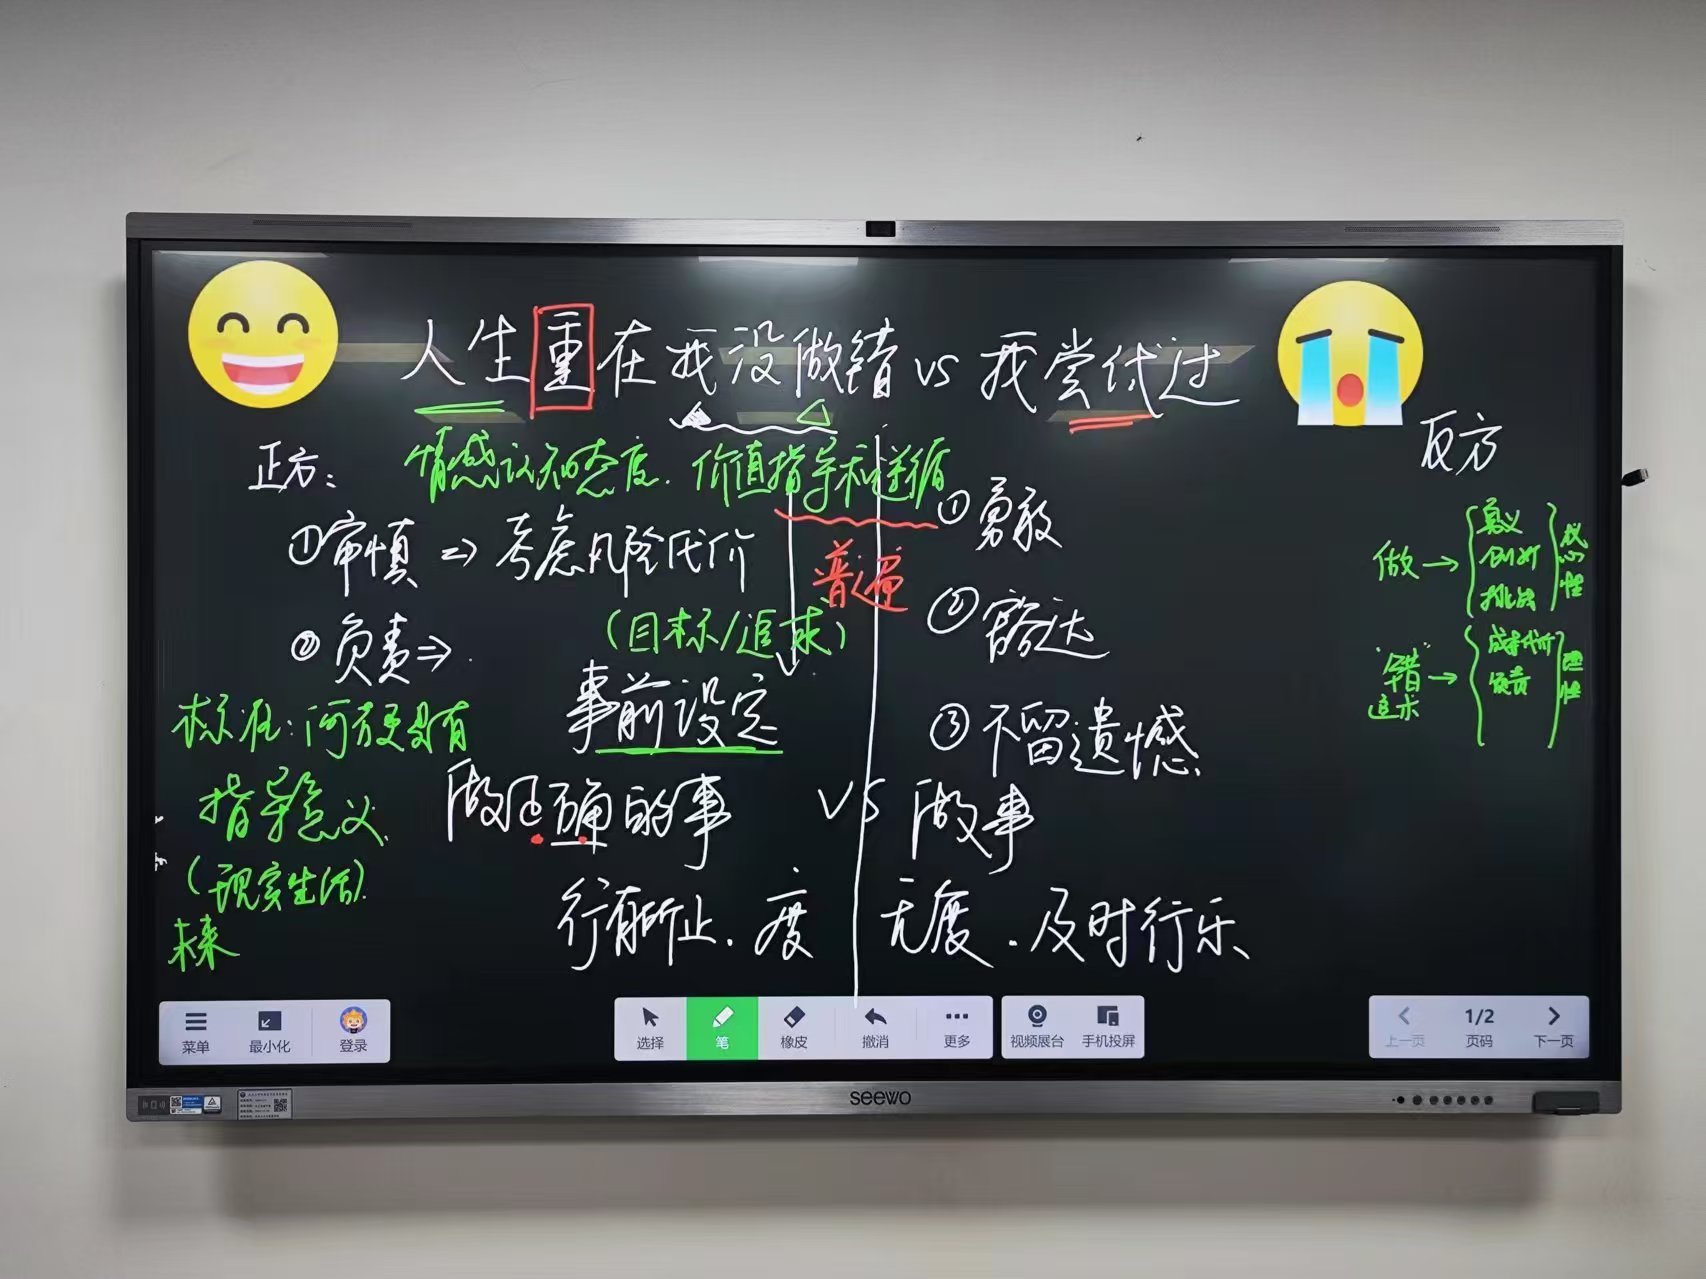 人生重在我没做错 vs 我尝试过
正方：
情感认知态度．价值指导和遵循
反方
①审慎 => 考虑风险代价
①勇敢
普遍
②负责 =>
(目标/追求)
②豁达
事前设定
③不留遗憾
标准：何方更具有
指导意义
(现实生活)．
未来
做正确的事 vs 做事
行有所止．度
无度．及时行乐
做 →
意义
创新
挑战
感性
"错" →
追求
成本代价
负责
理性
菜单
最小化
登录
选择
笔
橡皮
撤消
更多
视频展台
手机投屏
上一页
1/2
页码
下一页
seewo